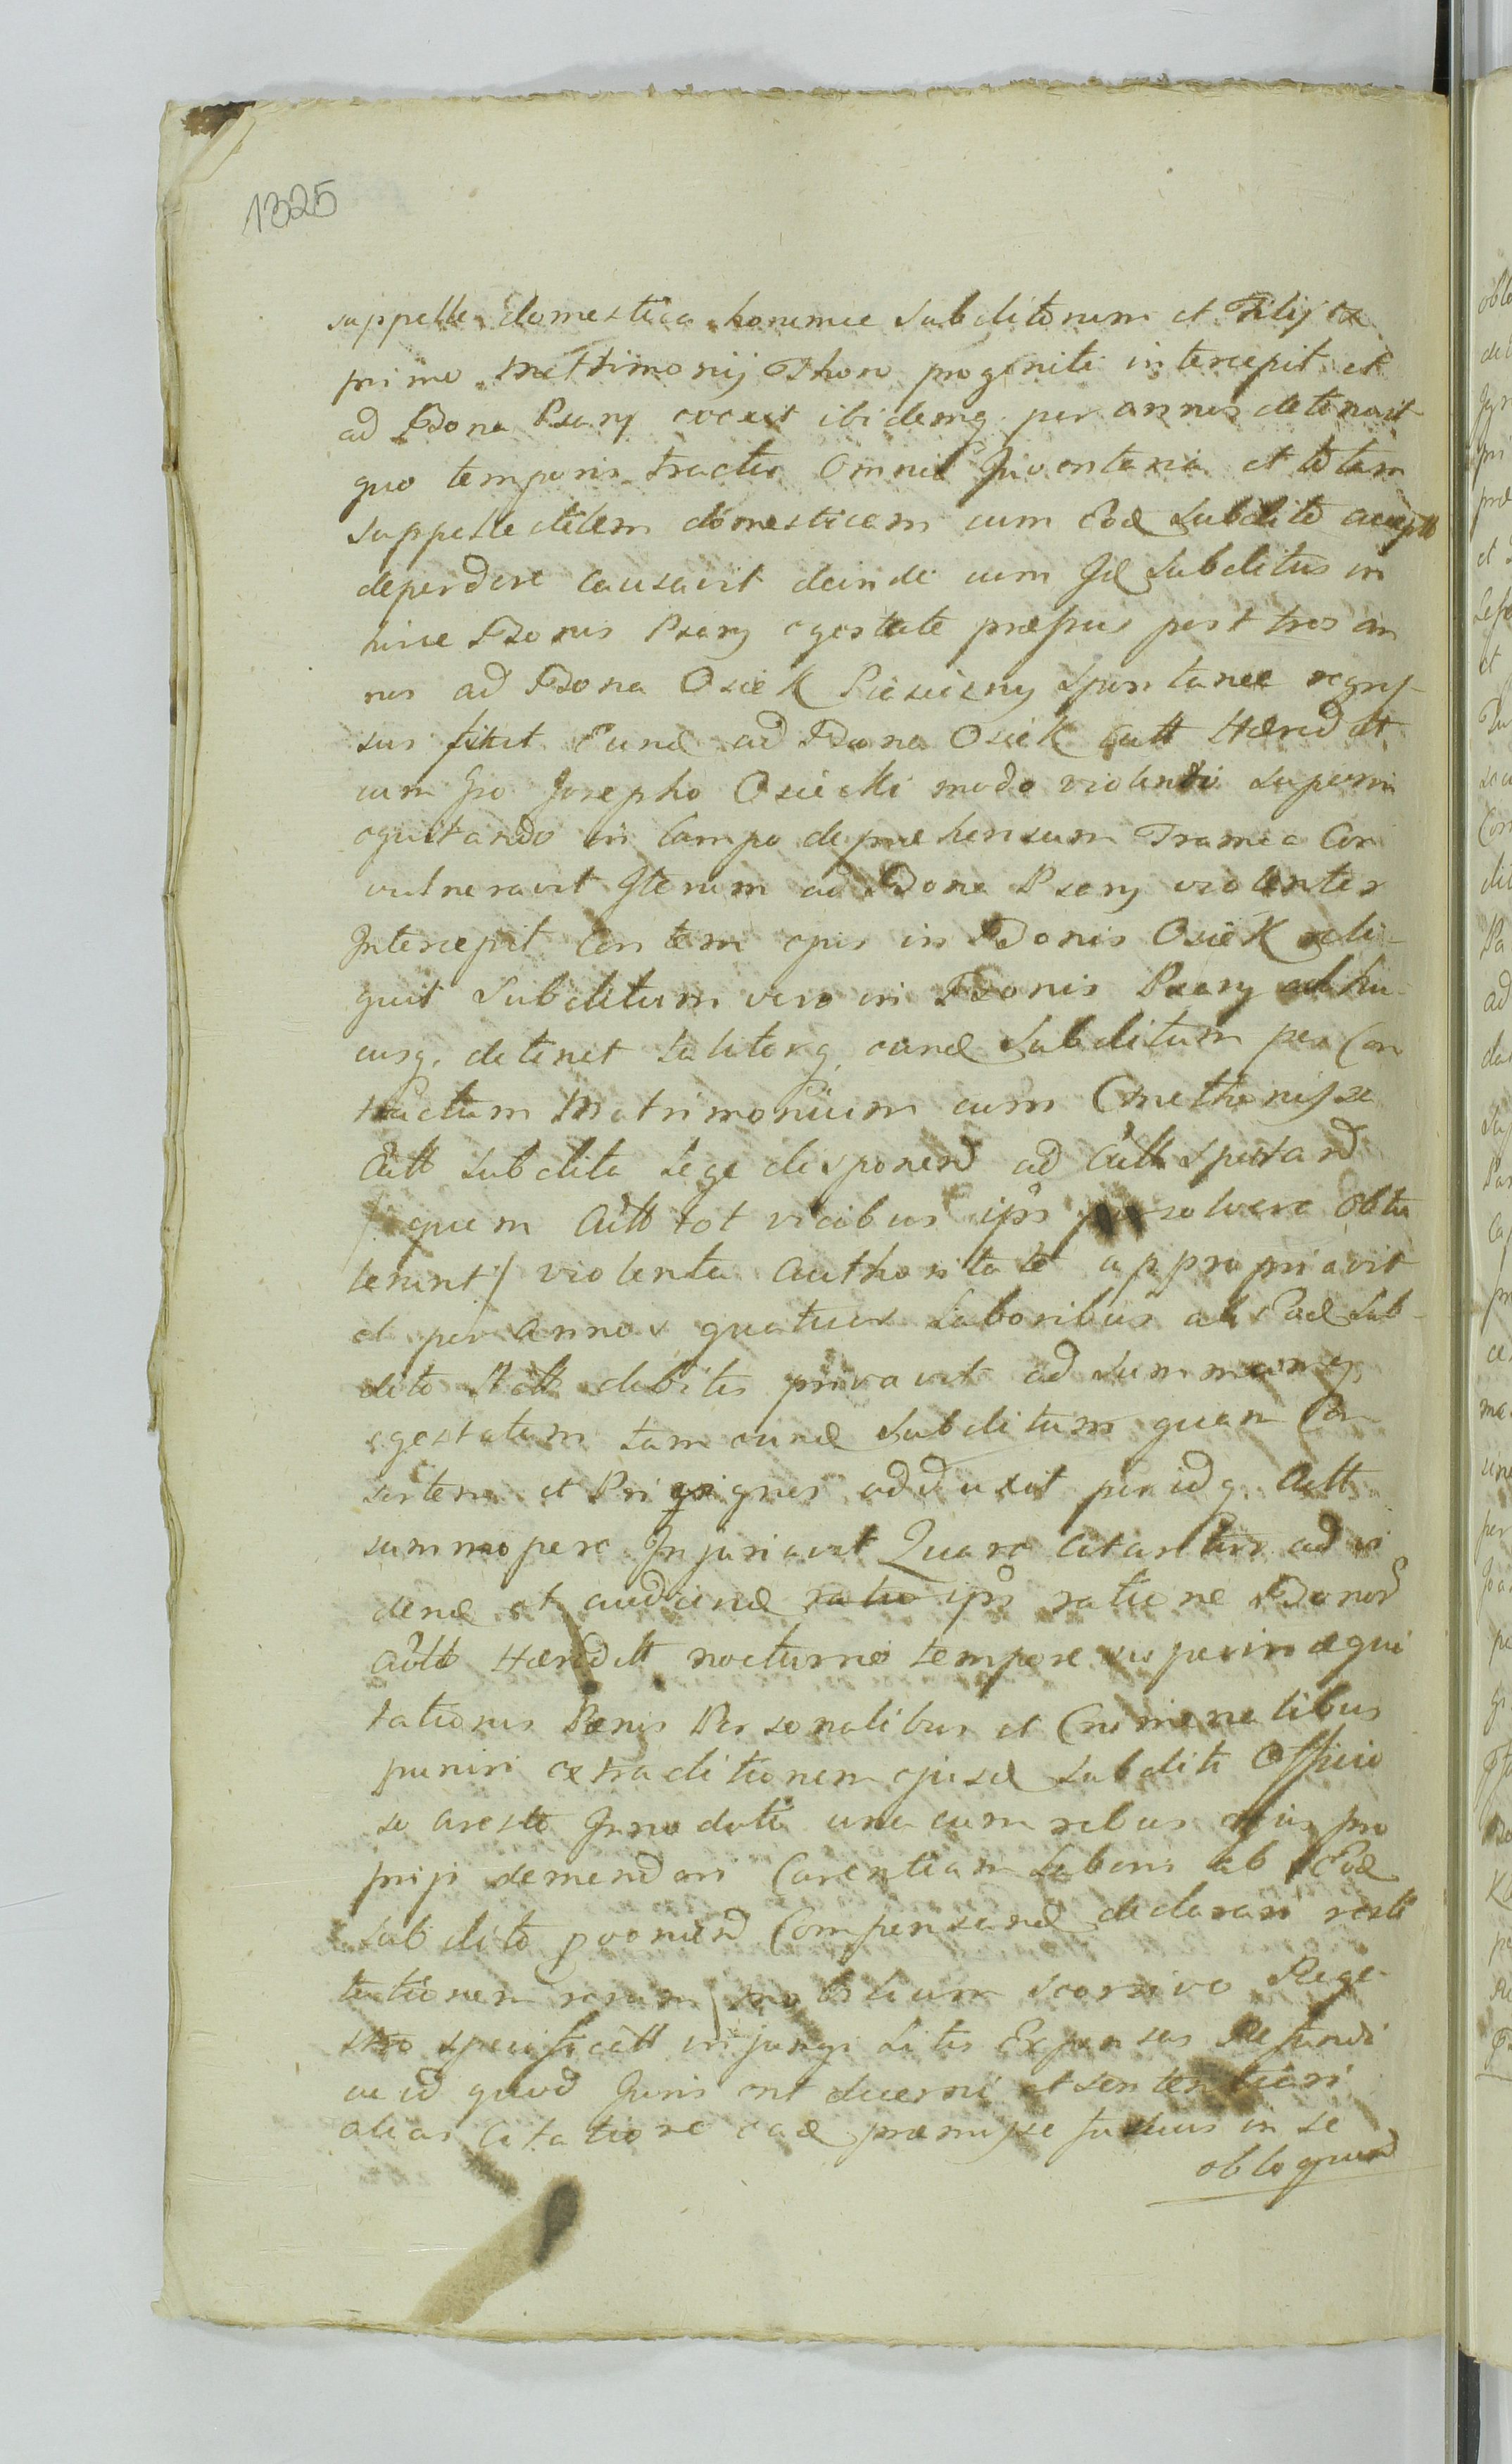 1325
suppelle domestica horumce Subditorum et Filij ex
primo Matrimonij Thoro progeniti intercepit et
ad Bona Psary evexit ibidemq per annos detenuit
quo temporis tractu Omnia Inventaria et totam
Suppellectilem domesticam cum Eod Subdito accept
deperdere causavit deinde cum Id Subditus in
hisce Bonis Psary egestate præssus post tres an
nos ad Bona Osiek Piesieczny Spontanee regres-
sus fuit Eund ad Bona Osiek Actt Hæred it
cum Gro Josepho Osiecki modo violento superin
equitando in Campo deprehensum Framea Con
vulneravit Iterum ad Bona Psary violenter
Intercepit Contem ejus in Bonis Osiek reli-
quit Subditum vero in Bonis Psary adhu-
cusq. detinet taliterq eund Subditum per Con
tractum Matrimonium cum Cmethonissa
Actt Subdita Lege disponend ad Actt Spectand
/ quem Actt tot vicibus ips solvere obtu
lerunt / violenta Authoritate appropriavit
et per Annos quatuor Laboribus ab Eod Sub-
dito Actt debitis privavit ad Summamq
egestatem tam eund Subditum quam Con
sortem et Privignos adduxit per idq Actt
summopere Injuriavit Quare citantur ad vi
dend et audiend ips ratione Bonor
Actt Hæreditt nocturno tempore superinæqui
tationis Pœnis Personalibus et Criminalibus
puniri extraditionem ejusd Subditi Officio
so Aresto Innodati una cum rebus ejus pro
prijs demendari Carentiam Laboris ab Eod
Subdito proviend Compensand declarari resti
tutionem rerum mobilium seorsivo Rege-
stro specificatt injungi Litis Expensas Refundi
ac id quod Juris ert decerni et sententiari
alias Citatione ead præmisse fusius in se
obloquend